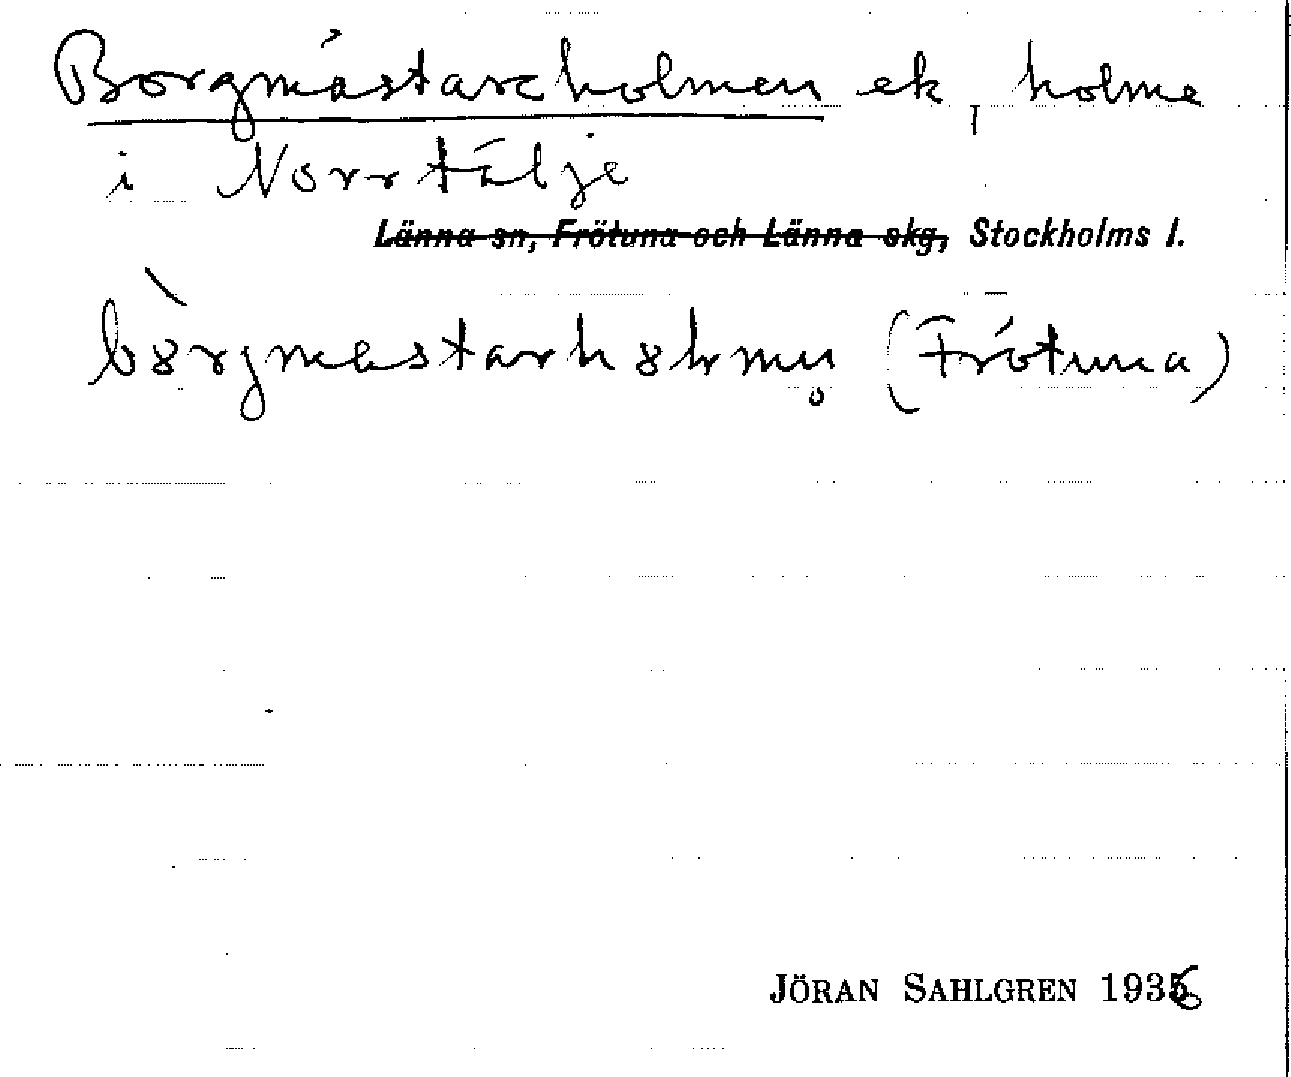 Borgmästareholmen ek, holme
i Norrtälje
Länna sn, Frötuna och Länna skg, Stockholms l.
(Frötuna)
JÖRAN SAHLGREN 1936